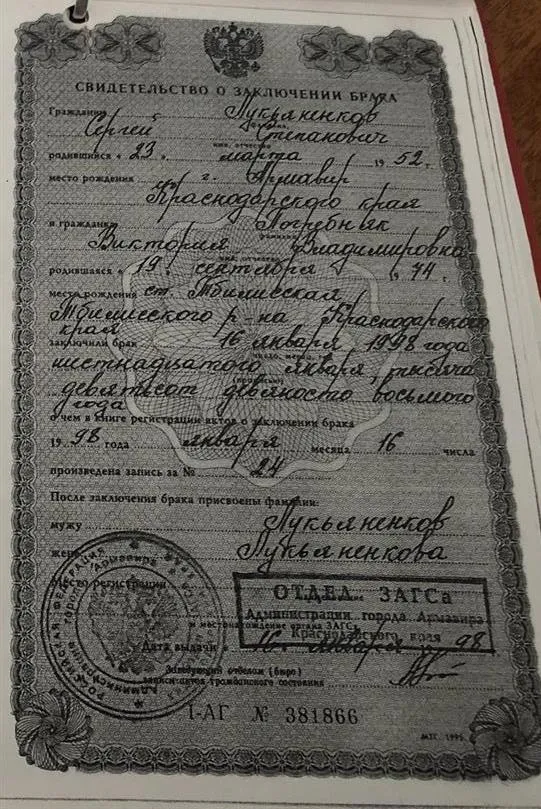 СВИДЕТЕЛЬСТВО О ЗАКЛЮЧЕНИИ БРАКА
Гражданин Лукьяненков
фамилия
Сергей Степанович
имя, отчество
родившийся « 23 » марта 19 52 г.
место рождения г. Армавир
Краснодарского края
и гражданка Погребняк
фамилия
Виктория Владимировна
имя, отчество
родившаяся « 19 » сентября 19 74 г.
место рождения ст. Тбилисская
Тбилисского р-на Краснодарского
края
заключили брак 16 января 1998 года
число, месяц, год
шестнадцатого января, тысяча
(прописью)
девятьсот девяносто восьмого
года
о чем в книге регистрации актов о заключении брака
19 98 года января месяца 16 числа
произведена запись за № 24
После заключения брака присвоены фамилии:
мужу Лукьяненков
жене Лукьяненкова
Место регистрации
ОТДЕЛ ЗАГСа
Администрации города Армавира
Краснодарского края
и местонахождение органа ЗАГСа
Дата выдачи « 16 » января 98
Заведующий отделом (бюро)
записи актов гражданского состояния
РОССИЙСКАЯ ФЕДЕРАЦИЯ
I-АГ № 381866